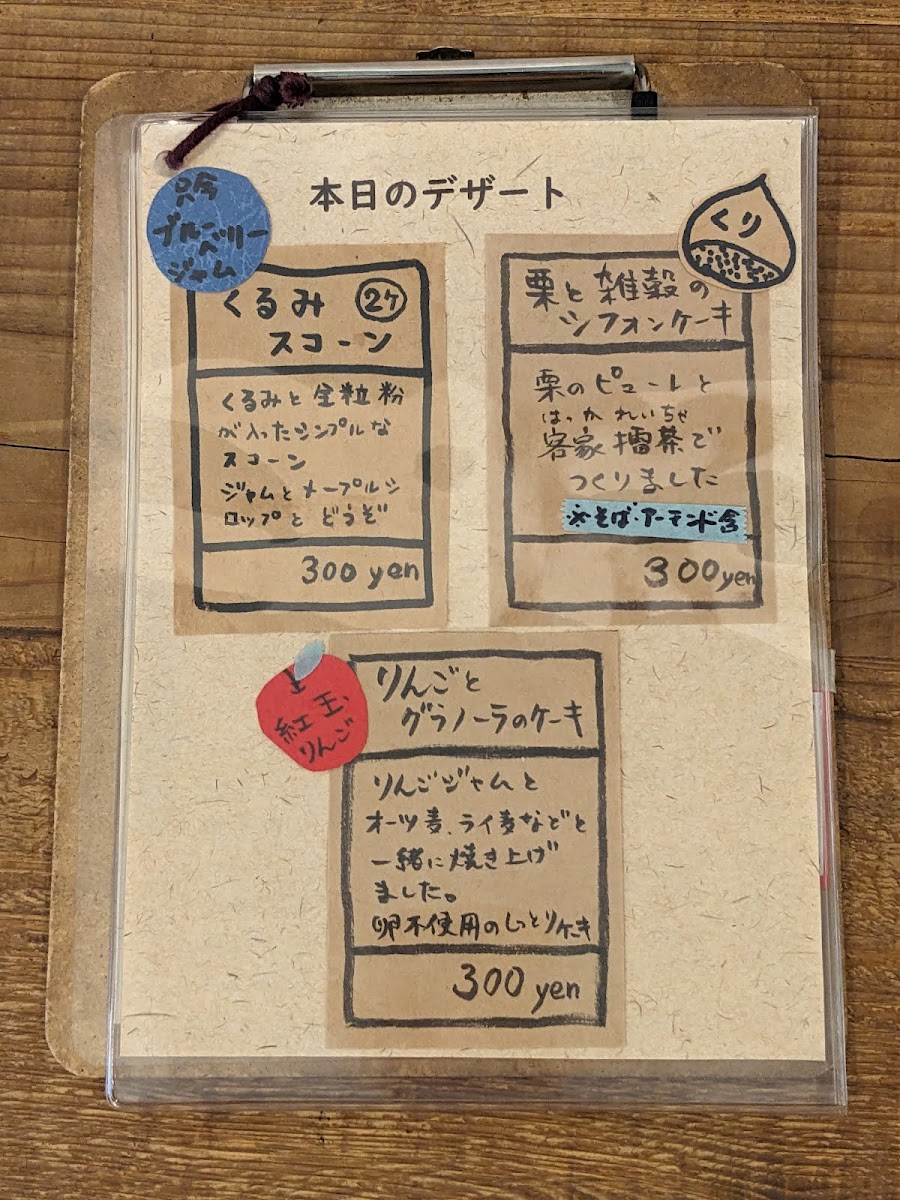 本日のデザート
只今
ブルーベリー
ジャム
くるみ ②ケ
スコーン
くるみと全粒粉
が入ったシンプルな
スコーン
ジャムとメープルシ
ロップと どうぞ
300 yen
くり
栗と雑穀の
シフォンケーキ
栗のピューレと
はっか れいちゃ
客家擂茶で
つくりました
※そば・アーモンド含
300yen
紅玉
りんご
りんごと
グラノーラのケーキ
りんごジャムと
オーツ麦、ライ麦などと
一緒に焼き上げ
ました。
卵不使用のしっとりケーキ
300 yen